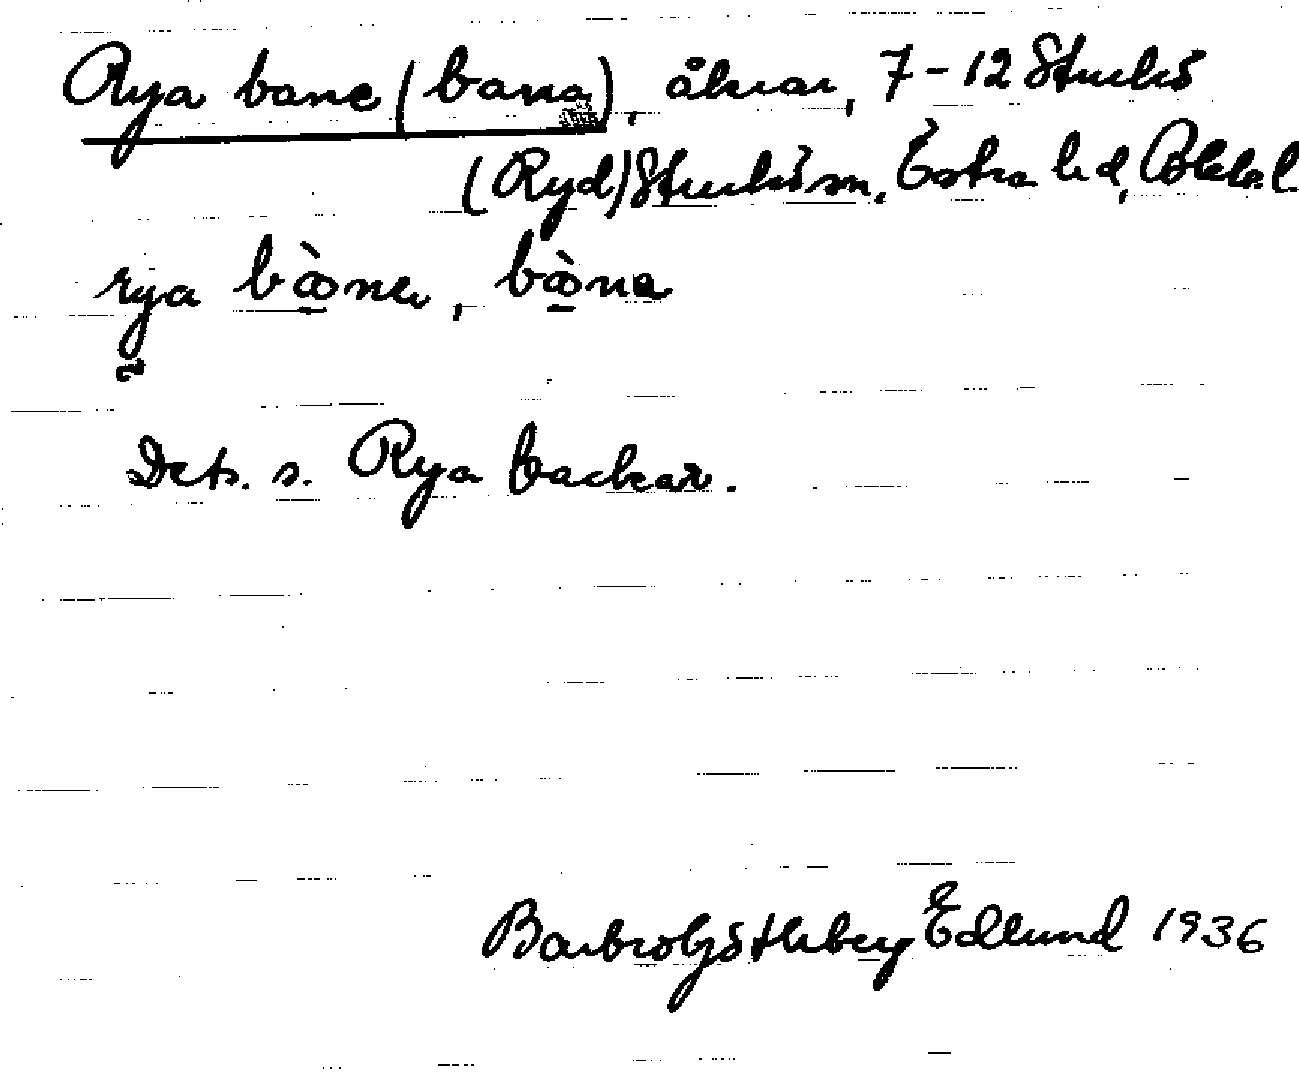 Rya bane (bana), åkrar, 7-12 Sturkö
(Ryd) Sturkö sn, Östra hd, Blek. l.
rya bànen, bàna
Dets. s. Rya backar.
Barbro Göthberg Edlund 1936